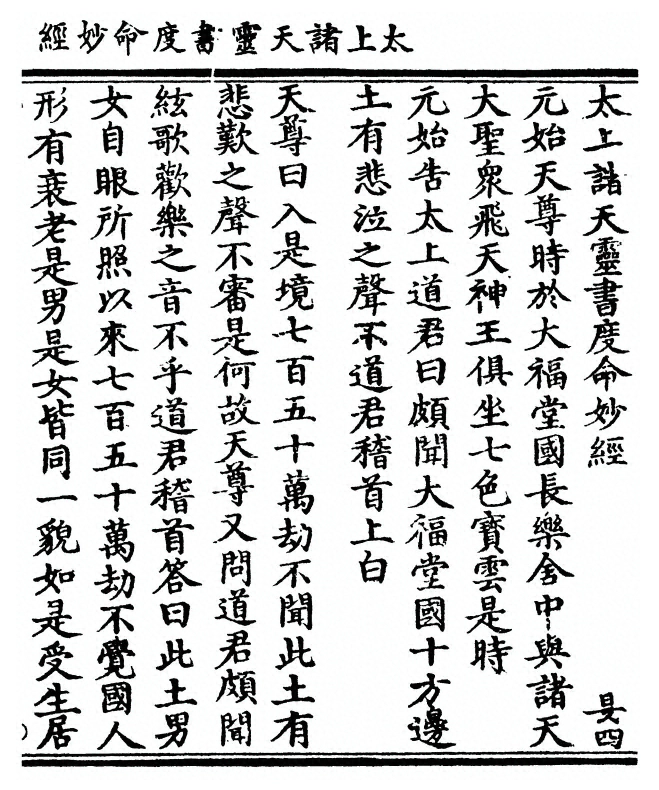 太上諸天靈書度命妙經
太上諸天靈書度命妙經 昃四
元始天尊時於大福堂國長樂舍中與諸天
大聖衆飛天神王俱坐七色寶雲是時
元始告太上道君曰頗聞大福堂國十方邊
土有悲泣之聲不道君稽首上白
天尊曰入是境七百五十萬劫不聞此土有
悲歎之聲不審是何故天尊又問道君頗聞
絃歌歡樂之音不乎道君稽首答曰此土男
女自眼所照以來七百五十萬劫不覺國人
形有衰老是男是女皆同一貌如是受生居